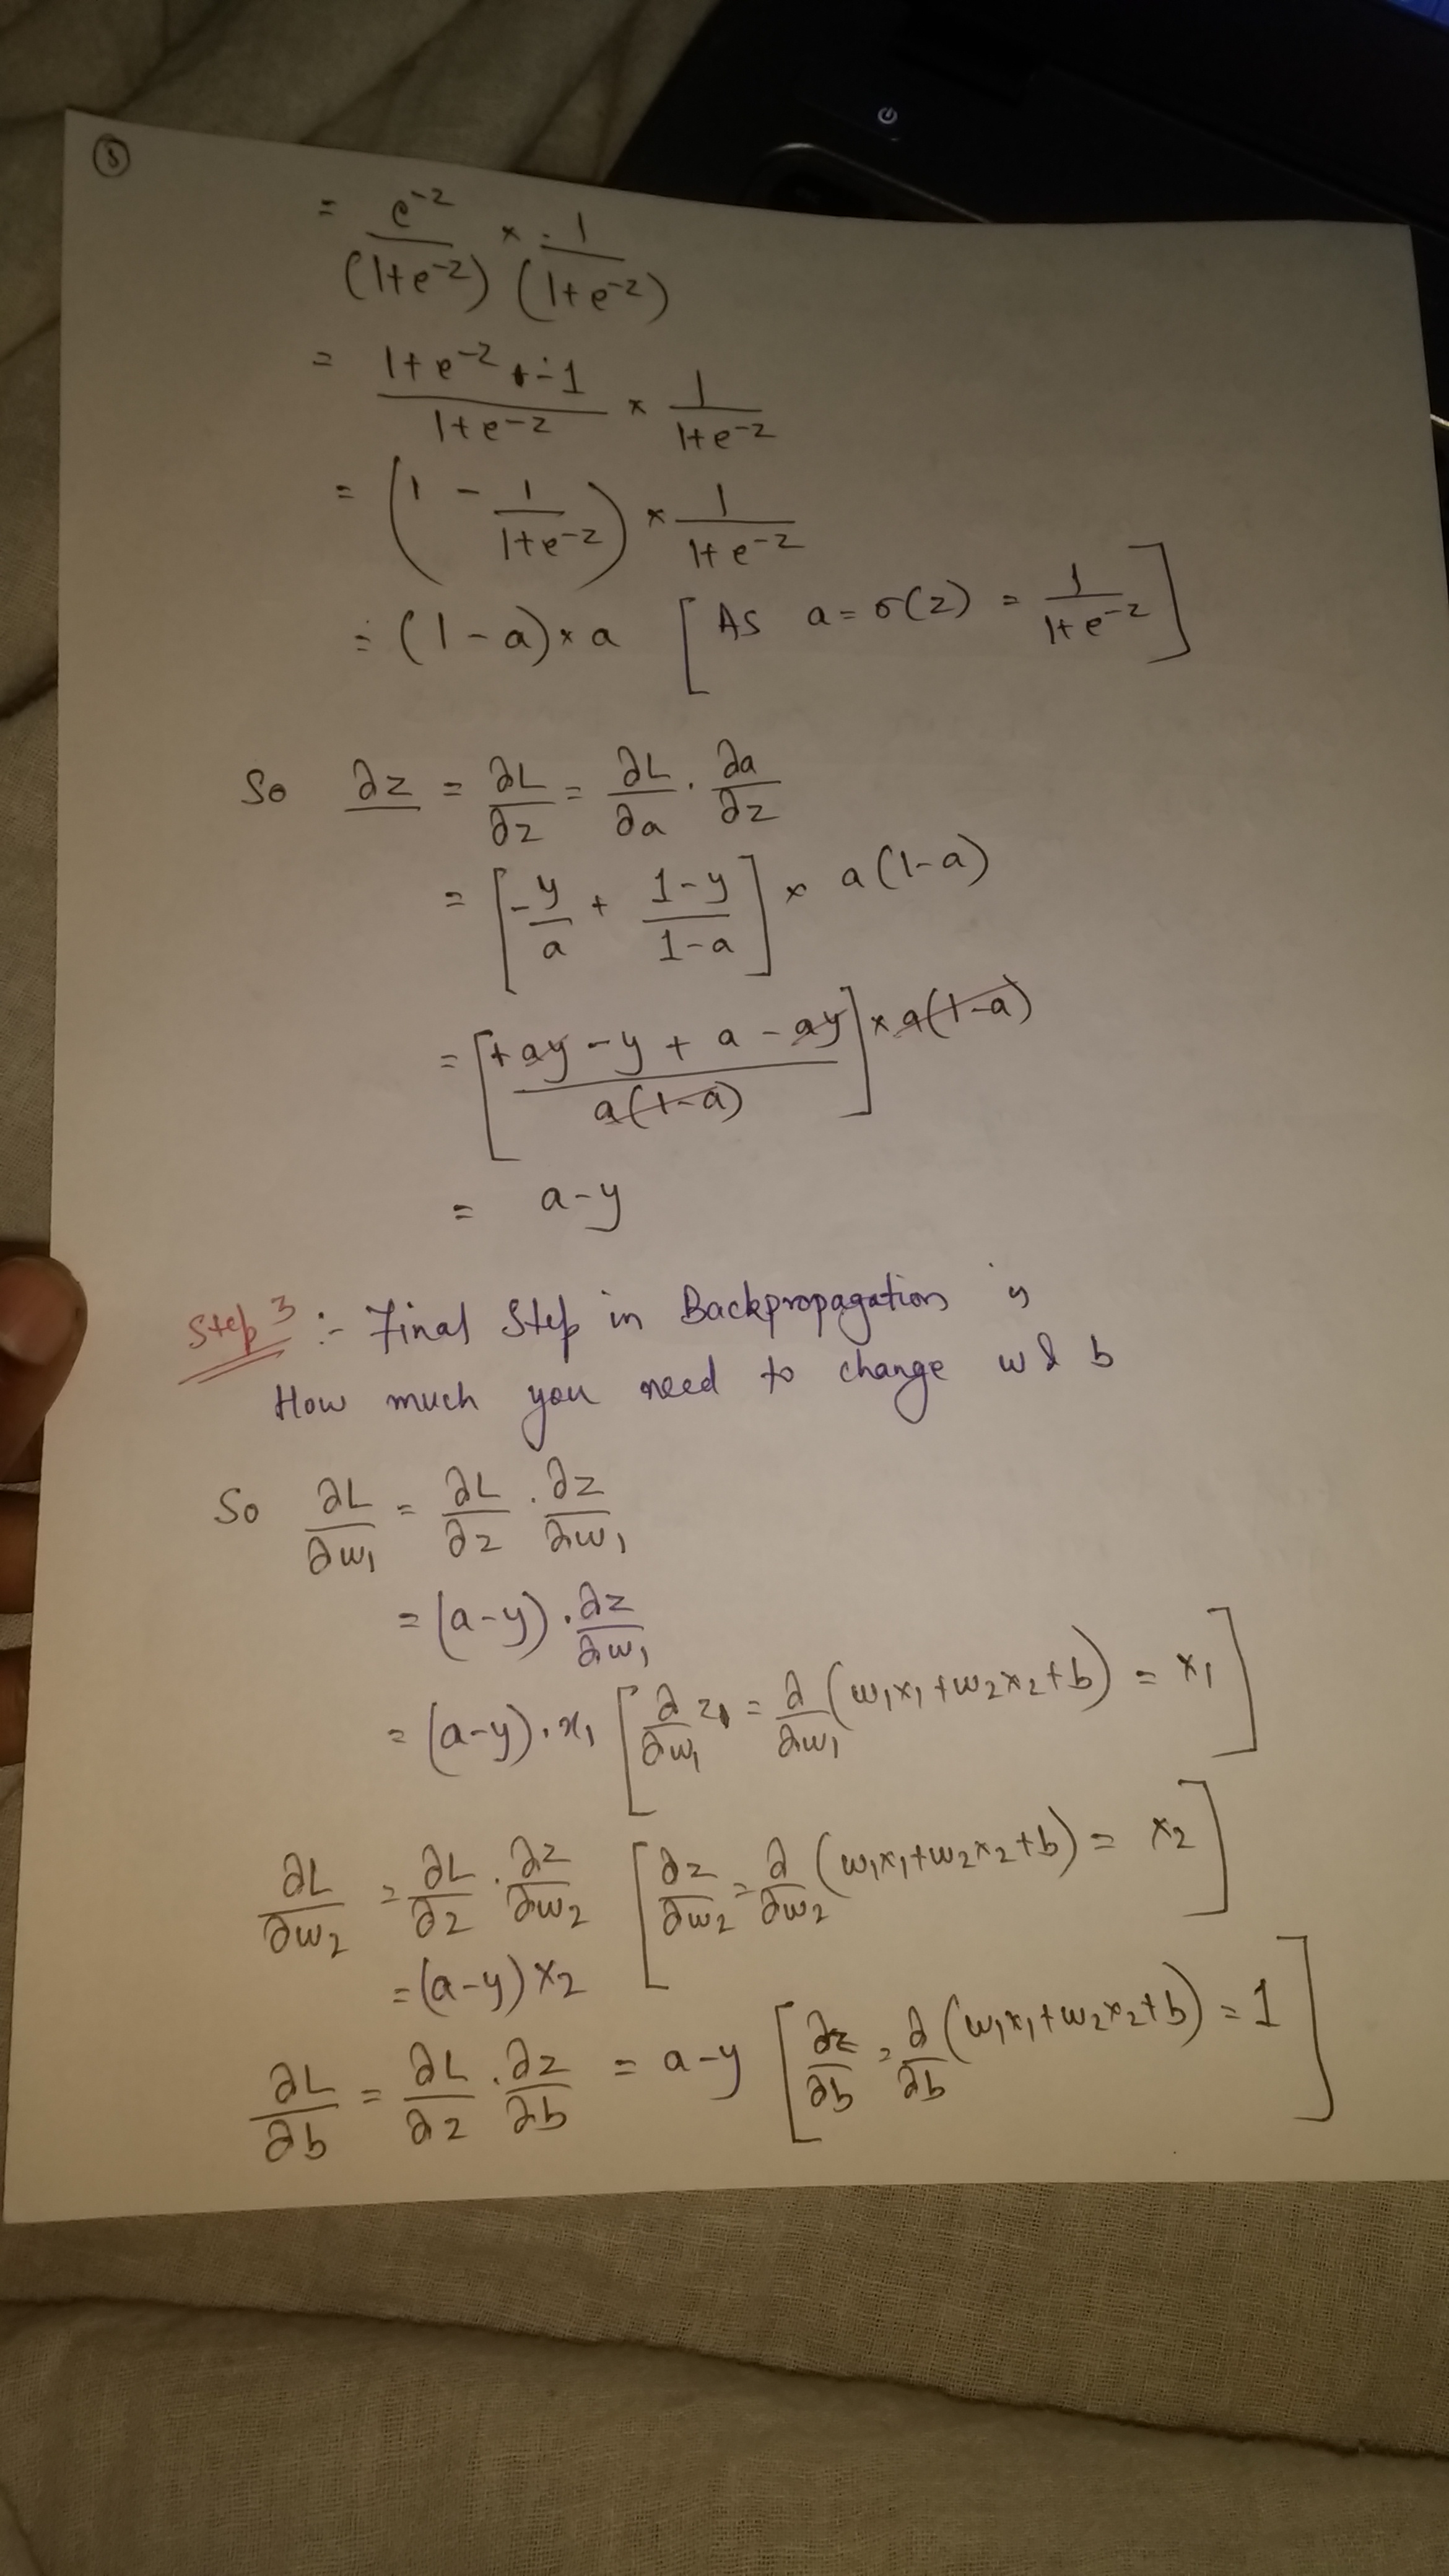 ⑧
= e^-z / (1+e^-z) × 1 / (1+e^-z)
= (1+e^-z - 1) / (1+e^-z) × 1 / (1+e^-z)
= (1 - 1/(1+e^-z)) × 1/(1+e^-z)
= (1-a) × a [As a = σ(z) = 1/(1+e^-z)]
So ∂z = ∂L/∂z = ∂L/∂a . ∂a/∂z
= [-y/a + (1-y)/(1-a)] × a(1-a)
= [(+ay - y + a - ay) / a(1-a)] × a(1-a)
= a-y
Step 3 :- Final Step in Backpropagation is
How much you need to change w & b
So ∂L/∂w₁ = ∂L/∂z . ∂z/∂w₁
= (a-y) . ∂z/∂w₁
= (a-y) . x₁ [∂/∂w₁ z = ∂/∂w₁ (w₁x₁+w₂x₂+b) = x₁]
∂L/∂w₂ = ∂L/∂z . ∂z/∂w₂ [∂z/∂w₂ = ∂/∂w₂ (w₁x₁+w₂x₂+b) = x₂]
= (a-y) x₂
∂L/∂b = ∂L/∂z . ∂z/∂b = a-y [∂z/∂b = ∂/∂b (w₁x₁+w₂x₂+b) = 1]